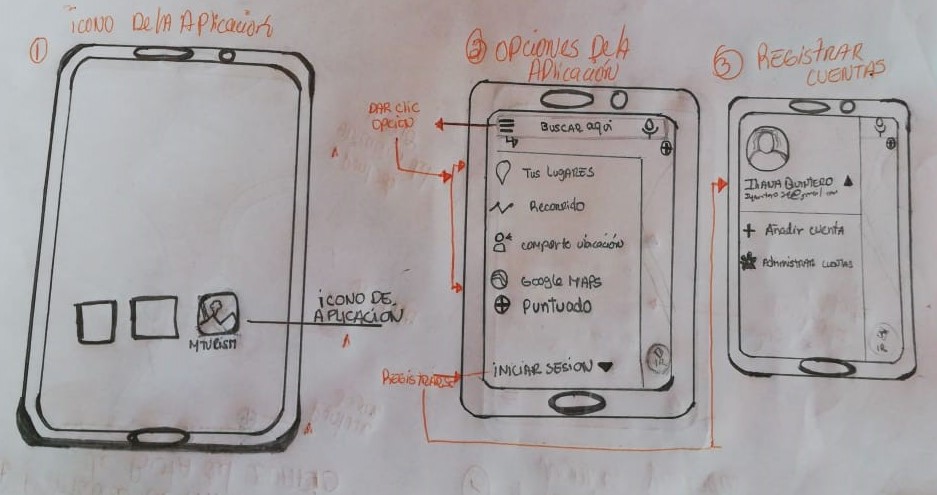 1 icono De lA Aplicacion
icono DE
APLICACIÓN
MTURISM
2 OPCIONES De lA
APlicación
DAR CLIC
OPCION
BUSCAR aquí
Tus LUGARES
Recorrido
comparte ubicación
Google MAPS
Puntuado
iNiCiAR SESION
REGISTRARSE
IR
3 REGISTRAR
CUENTAS
IliANA QUINTERO
+ Añadir cuenta
Administrar cuentas
IR